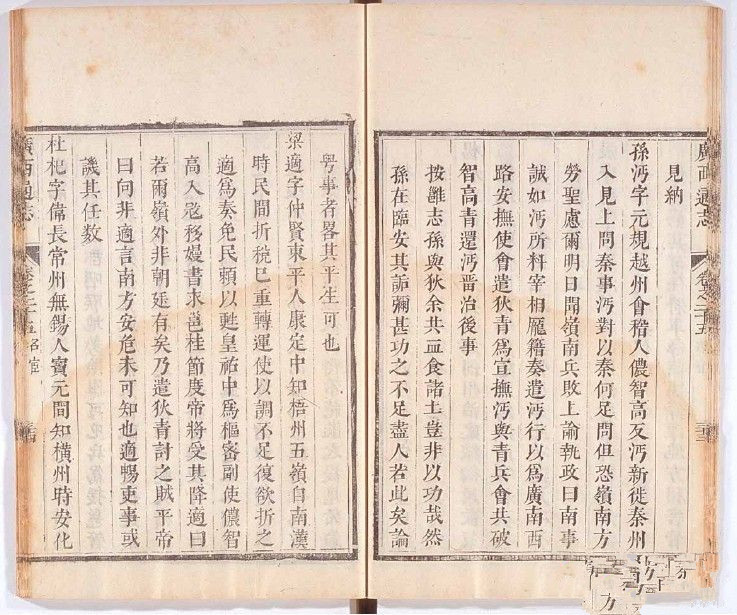 廣西通志
卷之二十五
見納
孫沔字元規越州會稽人儂智高反沔新徙秦州
入見上問秦事沔對以秦何足問但恐嶺南方
勞聖慮爾明日聞嶺南兵敗上諭執政曰南事
誠如沔所料宰相龎籍奏遣沔行以爲廣南西
路安撫使會遣狄青爲宣撫沔與青兵會共破
智高青還沔晋治後事
按雝志孫與狄余共血食諸土豈非以功哉然
孫在臨安其詬彌甚功之不足盡人若此矣論
粤事者畧其平生可也
梁適字仲賢東平人康定中知梧州五嶺自南漢
時民間折稅巳重轉運使以調不足復欲折之
適爲奏免民頼以甦皇祐中爲樞密副使儂智
高入寇移嫚書求邕桂節度帝將受其降適曰
若爾嶺外非朝廷有矣乃遣狄青討之賊平帝
曰向非適言南方安危未可知也適暘吏事或
譏其任數
杜杞字偉長常州無錫人寶元間知橫州時安化
廣西通志
卷之二十五名宦